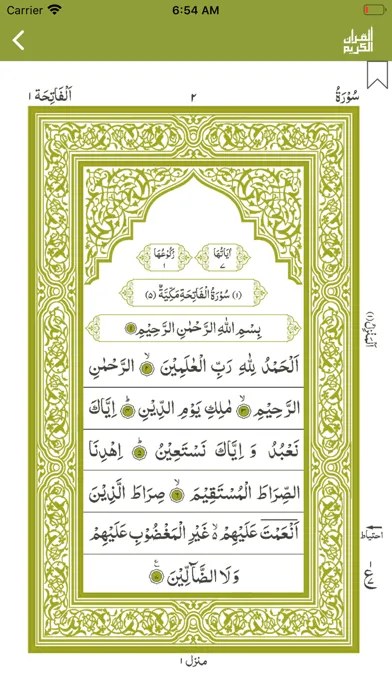 Carrier 6:54 AM
القرآن الكريم
سُوْرَةُ ٢ اَلْفَاتِحَة ١
اٰيَاتُهَا ٧ رُكُوْعُهَا ١
(١) سُوْرَةُ الْفَاتِحَةِ مَكِّيَّةٌ (٥)
بِسْمِ اللّٰهِ الرَّحْمٰنِ الرَّحِيْمِ ١
اَلْحَمْدُ لِلّٰهِ رَبِّ الْعٰلَمِيْنَ ۙ ٢ الرَّحْمٰنِ
الرَّحِيْمِ ۙ ٣ مٰلِكِ يَوْمِ الدِّيْنِ ؕ ٤ اِيَّاكَ
نَعْبُدُ وَ اِيَّاكَ نَسْتَعِيْنُ ؕ ٥ اِهْدِنَا
الصِّرَاطَ الْمُسْتَقِيْمَ ۙ ٦ صِرَاطَ الَّذِيْنَ
اَنْعَمْتَ عَلَيْهِمْ ۙ۬ غَيْرِ الْمَغْضُوْبِ عَلَيْهِمْ
وَ لَا الضَّآلِّيْنَ ٧
اَلْمَنْزِلُ (١)
احتیاط
ع
منزل ١